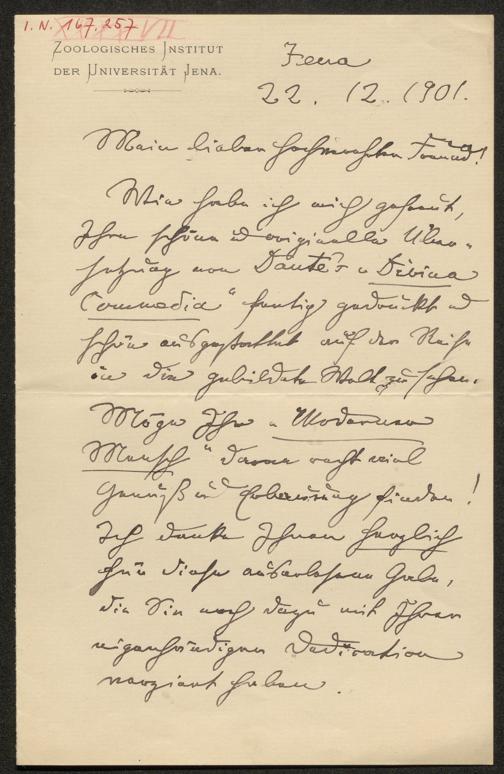 I. N. 167.257
ZOOLOGISCHES INSTITUT
DER UNIVERSITÄT JENA.
Jena
22. 12. 1901.
Mein lieber hochverehrter Freund!
Wie habe ich mich gefreut,
Ihre schöne u originelle Über-
setzung von Dante's „Divina
Commedia“ fertig gedruckt u
schön ausgestattet auf der Reise
in die gebildete Welt zu sehen.
Möge Ihr „Moderner
Mensch“ daran recht viel
Genuß und Erbauung finden!
Ich danke Ihnen herzlich
für diese auserlesene Gabe,
die Sie noch dazu mit Ihrer
eigenhändigen Dedication
verziert haben.